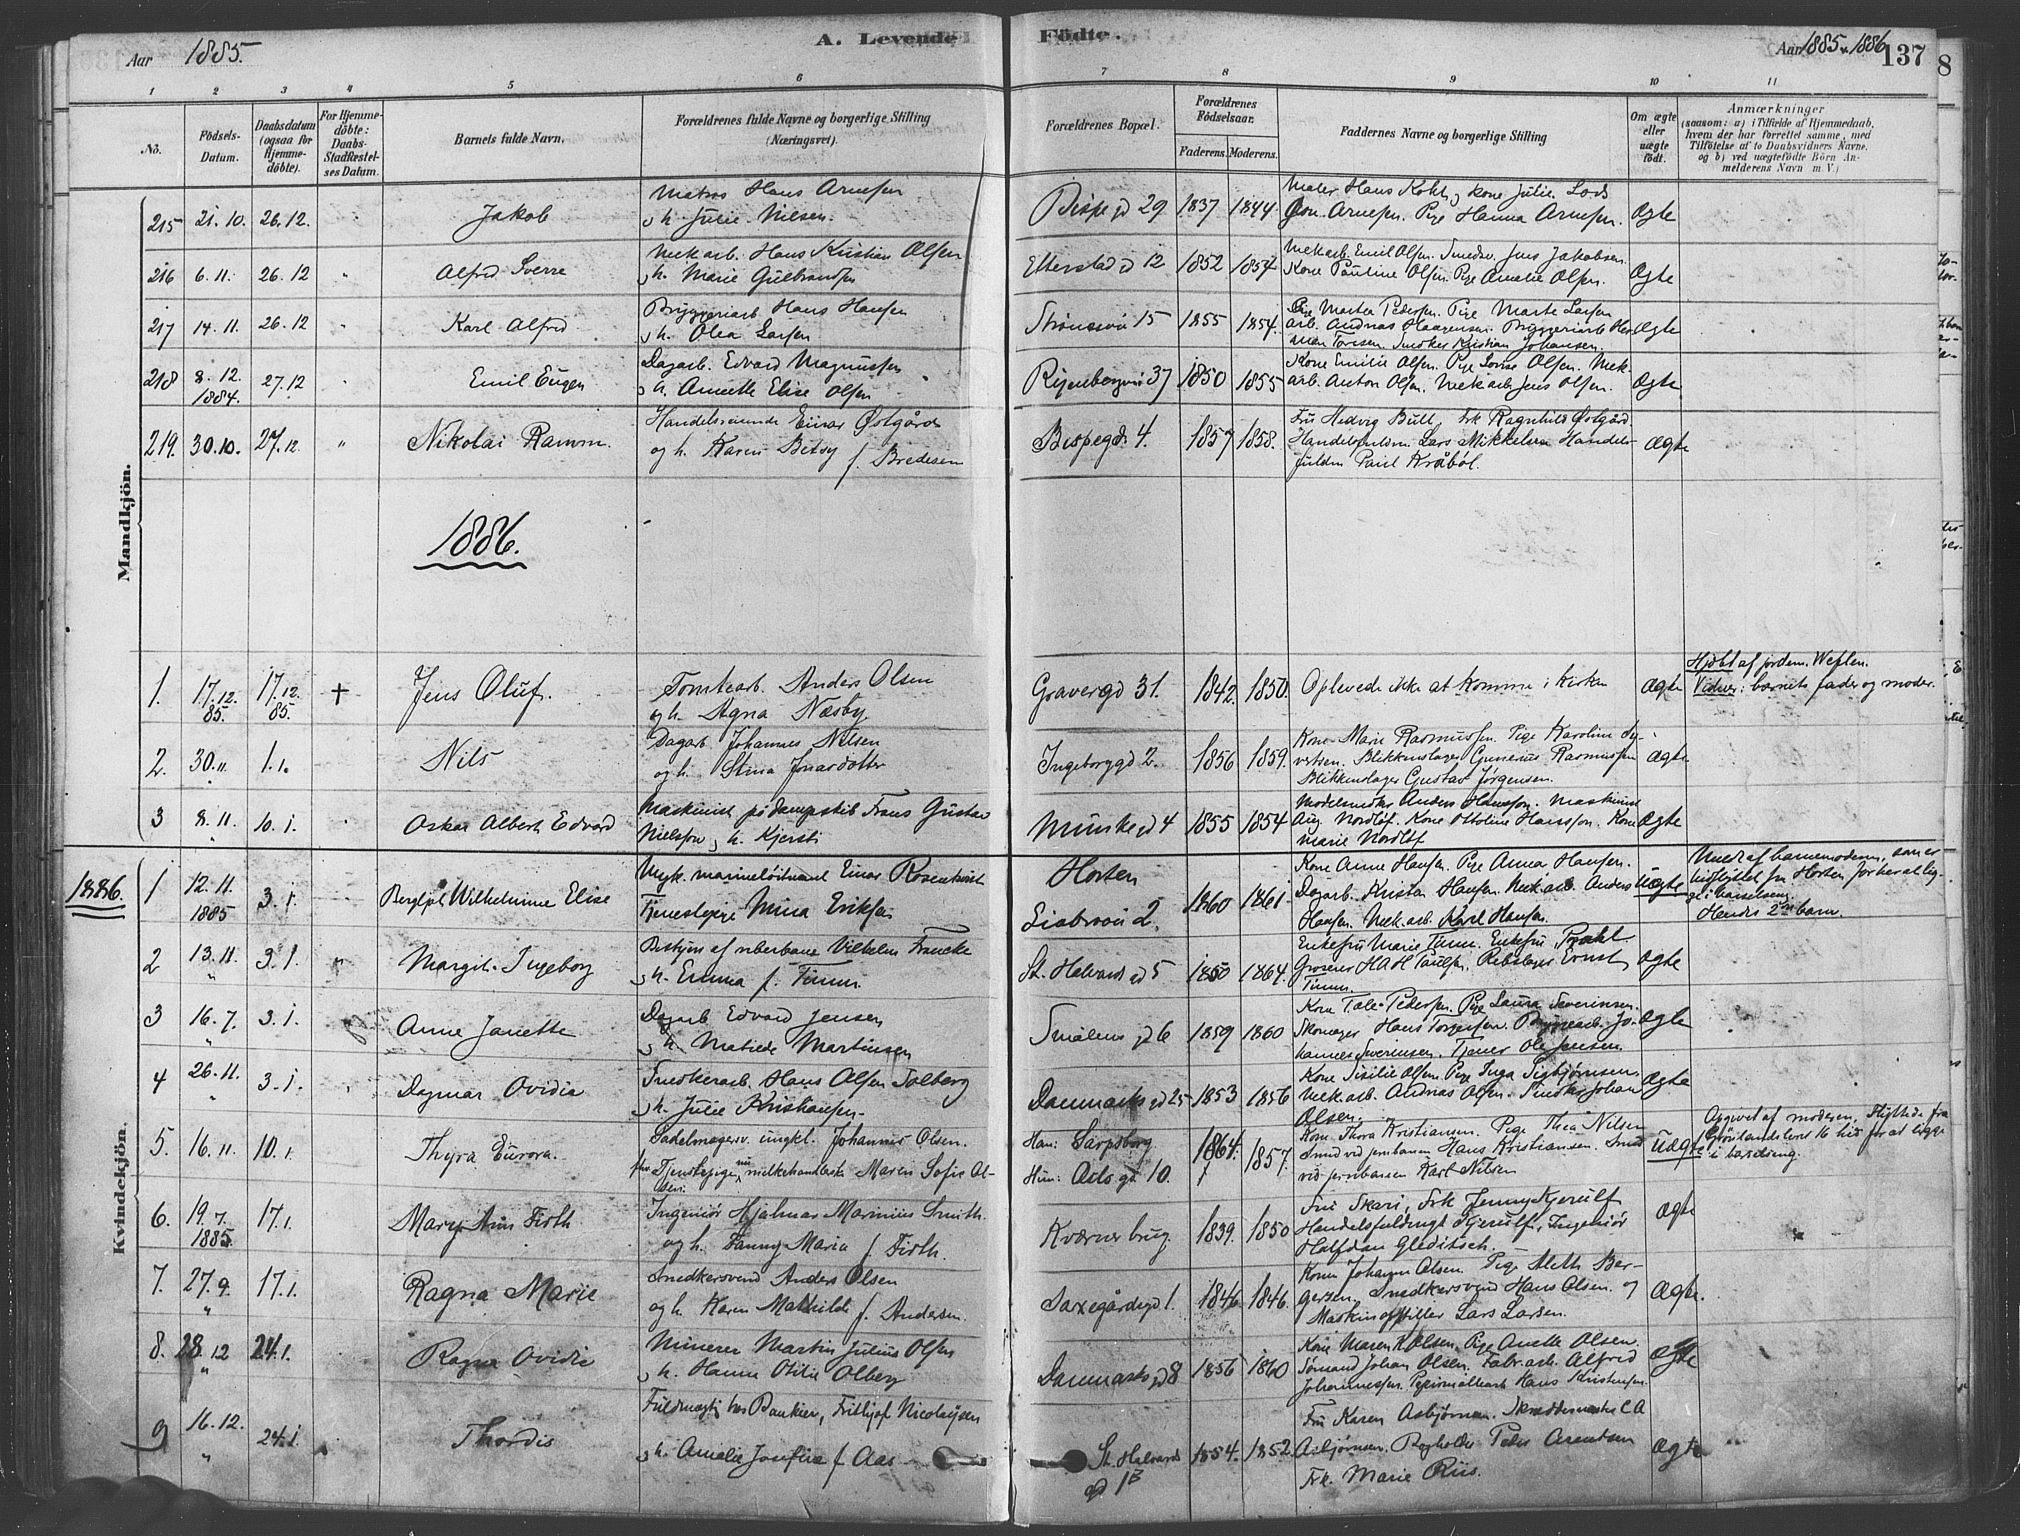 A. Levende Födte.
Aar 1885.
Aar 1885 & 1886 137
8
1 2 3 4 5 6 7 8 9 10 11
No.
Födsels-Datum.
Daabsdatum (ogsaa for Hjemme-döbte).
For Hjemme-döbte: Daabs-Stadfæstel-ses Datum.
Barnets fulde Navn.
Forældrenes fulde Navne og borgerlige Stilling (Næringsvei).
Forældrenes Bopæl.
Forældrenes Födselsaar.
Faderens. Moderens.
Faddernes Navne og borgerlige Stilling
Om ægte eller uægte födt.
Anmærkninger
(saasom: a) i Tilfælde af Hjemmedaab, hvem der har forrettet samme, med Tilföielse af to Daabsvidners Navne. og b) ved uægtefödte Börn An-melderens Navn m. V.)
Mandkjön.
215 21.10. 26.12. Jakob
Matros Hans Arnesen
og h. Julie Nilsen.
Bispegd 29 1837 1844.
Maler Hans Kohl, Kone Julie
Arnesen. Pige Hanna Arnesen. Ægte
216 6.11. 26.12 " Alfred Sverre
Mekarb. Hans Kristian Olsen
og h. Marie Gulbrandsen
Etterstadgd 12 1852 1854
Mekarb. Emil Olsen. Smedsv. Jens Jakobsen.
Kone Pauline Olsen. Pige Amalie Olsen. Ægte
217 14.11. 26.12 " Karl Alfred
Bryggeriarb Hans Hansen
og h. Olea Larsen
Strömsvei 15 1855 1854.
Pige Marta Pedersen. Pige Marte Larsen
arb. Andreas Haagensen. Bryggeriarb. Her-
man Toresen. Snedker Kristian Johansen. Ægte
218 8.12. 1884. 27.12 " Emil Eugen
Dagarb. Edvard Magnussen
og h. Annette Elise Olsen
Ryenbergvei 37 1850 1855
Kone Emilie Olsen. Pige Lovise Olsen. Mek
arb. Anton Olsen. Mekarb Jens Olsen. Ægte
219. 30.10. 27.12. " Nikolai Ramm.
Handelsreisende Einar Østgård
og h. Karen Betsy f. Bredesen
Bispegd. 4. 1857 1858.
Fru Hedvig Bull. Frk Ragnhild Østgård
Handelsfuldm. Lars Mikkelsen Handels-
fuldm Paul Kråböl. Ægte
1886.
1. 17.12. 85. 17.12. 85. † Jens Oluf.
Tomtearb. Anders Olsen
og h. Agna Næsby.
Gravergd 31. 1842. 1850.
Oplevede ikke at komme i Kirken Ægte
Hjdbt af jordem. Weflen.
Vidner: barnets fader og moder.
2. 30.11. 1.1. Nils
Dagarb Johannes Nilsen
og h. Stina Jonasdotter
Ingeborggd 2. 1856 1859.
Kone Marie Rasmussen. Pige Karoline Sy-
vertsen. Blikkenslager Gunerius Rasmussen
Blikkenslager Gustav Jørgensen. Ægte
3 8.11. 10.1. Oskar Albert Edvard
Maskinist på dampskib Frans Gustav
Nielsson, h. Kjersti
Munkegd 4 1855 1854
Modelsnedker Anders Hansson. Maskinist
Aug. Nordlöf. Kone Ottoline Hansson. Kone
Marie Nordlöf Ægte
Kvindekjön.
1886.
1 12.11. 1885 3.1. Bergljot Wilhelmine Elise
Ungk. marineløitnant Einar Rosenkvist
Tjenestepige Mina Eriksen
Horten
Liabrovei 2. 1860 1861
Kone Anne Hansen. Pige Anna Hansen.
Dagarb. Kristen Hansen. Mekarb. Anders
Hansen. Mekarb. Karl Hansen. Uægte
Anmeldt af barnemoderen, som er
indflyttet fra Horten for her at lig-
ge i barselseng
Hendes 2det barn.
2 13.11. " 3.1. " Margit Ingeborg
Bestyrer af reberbane Vilhelm Francke
og h. Emma f. Timm.
St. Halvards gd 5 1850 1864.
Enkefru Marie Timm. Enkefru
Grosserer H A H. Rebslager Ernst
Timm. Ægte
3 16.7. " 3.1. Anne Janette
Dagarb Edvard Jensen
og h. Matilde Martinsen
Smålensgd 6 1859 1860
Kone Tale Pedersen, Pige Laura Severinsen.
Skomager Hans Torgersen. Jo-
hannes Severinsen. Tjener Ole Jensen. Ægte
4 26.11. " 3.1. Dagmar Ovidia
Snedkerarb. Hans Olsen Solberg
og h. Julie Kristiansen
Danmarksgd 25 1853 1856
Kone Sisilie Olsen. Pige Inga Sigbjørnsen
Mekarb. Andreas Olsen. Snedker Johan
Olsen. Ægte
5. 16.11. 10.1. Thyra Eurora.
Sadelmagersv. ungkl. Johannes Olsen.
før Tjenestepige nu melkehandlerske Maren Sofie Ol-
sen.
Han: Sarpsborg
Hun: Oslogd 10. 1864. 1857.
Kone Thora Kristiansen. Pige Thea Nilsen
Smed ved jernbanen Hans Kristiansen. Smed
ved jernbanen Karl Nilsen Uægte
Opgivet af moderen, flyttede fra
Grönlandsleret 16 hid for at ligge
i barselseng.
6. 19.7. 1885. 17.1. Mary Ann Firth
Ingeniör Hjalmar Marinius Smith.
og h. Fanny Maria f. Firth.
Kværnerbrug. 1839. 1850
Fru Skari, Frk Jenny Kjerulf
Handelsfuldmgt Kjerulf, Ingeniör
Halfdan Gleditsch. Ægte
7. 27.9. " 17.1. Ragna Marie
Snedkersvend Anders Olsen
og h. Karen Mathilde f. Andersen.
Saxegårdsgd 1. 1846 1846.
Kone Johanne Olsen. Pige Aleth Ber-
gersen, Snedkersvend Hans Olsen. og
Maskinopstiller Lars Larsen. Ægte.
8. 28.12 " 24.1. Ragna Ovidia
Minerer Martin Julius Olsen
og h. Hanne Otilie Olberg
Danmarksgd 8 1856 1860
Kone Maren Olsen. Pige Anette Olsen
Sømand Johan Olsen. Fabr.arb. Alfred
Johannessen. Hans Kristensen Ægte
9 16.12. " 24.1. Thordis
Fuldmægtig hos Bankier, Fridtjof Nicolaysen
og h. Amalie Josefine f Aas
St. Halvards
gd 1B 1854. 1852.
Fru Karen Asbjørnsen. Skreddermester C A
Asbjørnsen. Bogholder Peder Arentsen
Frk. Marie Riis. Ægte